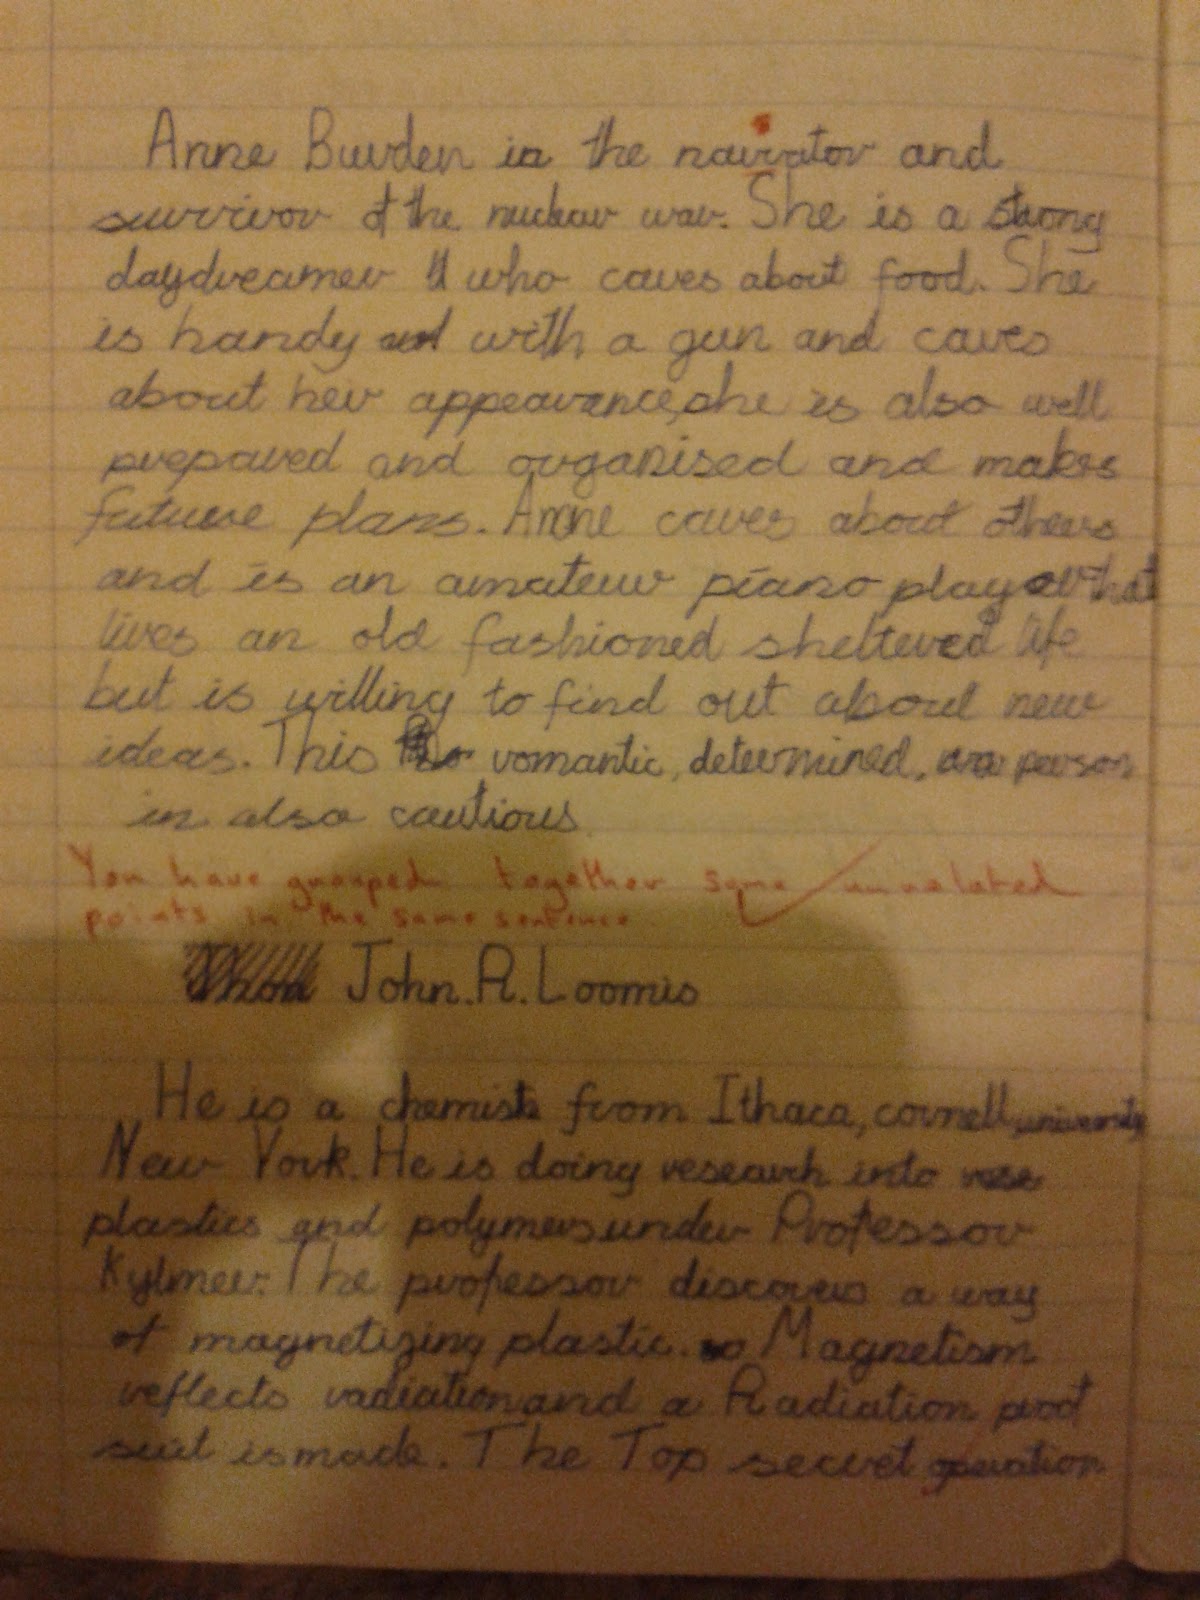 Anne Burden is the narrator and
survivor of the nuclear war. She is a strong
daydreamer who cares about food. She
is handy with a gun and cares
about her appearance, she is also well
prepared and organised and makes
future plans. Anne cares about others
and is an amateur piano player that
lives an old fashioned sheltered life
but is willing to find out about new
ideas. This romantic, determined, person
in also cautious.
You have grouped together some unrelated
points in the same sentence.
John. A. Loomis
He is a chemist from Ithaca, cornell university,
New York. He is doing research into
plastics and polymers under Professor
Kylmer. The professor discovers a way
of magnetizing plastic. Magnetism
reflects radiation and a Radiation proof
suit is made. The Top secret operation